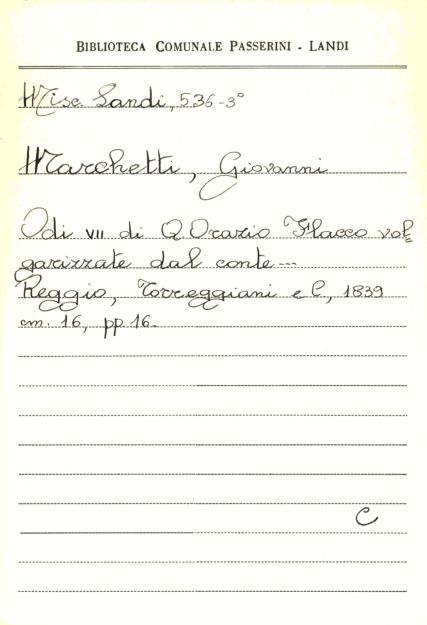 BIBLIOTECA COMUNALE PASSERINI - LANDI
Misc. Landi, 536-3°
Marchetti, Giovanni
Odi VII di Q. Orazio Flacco vol=
garizzate dal conte---
Reggio, Torreggiani e C., 1839
cm. 16, pp. 16.
C